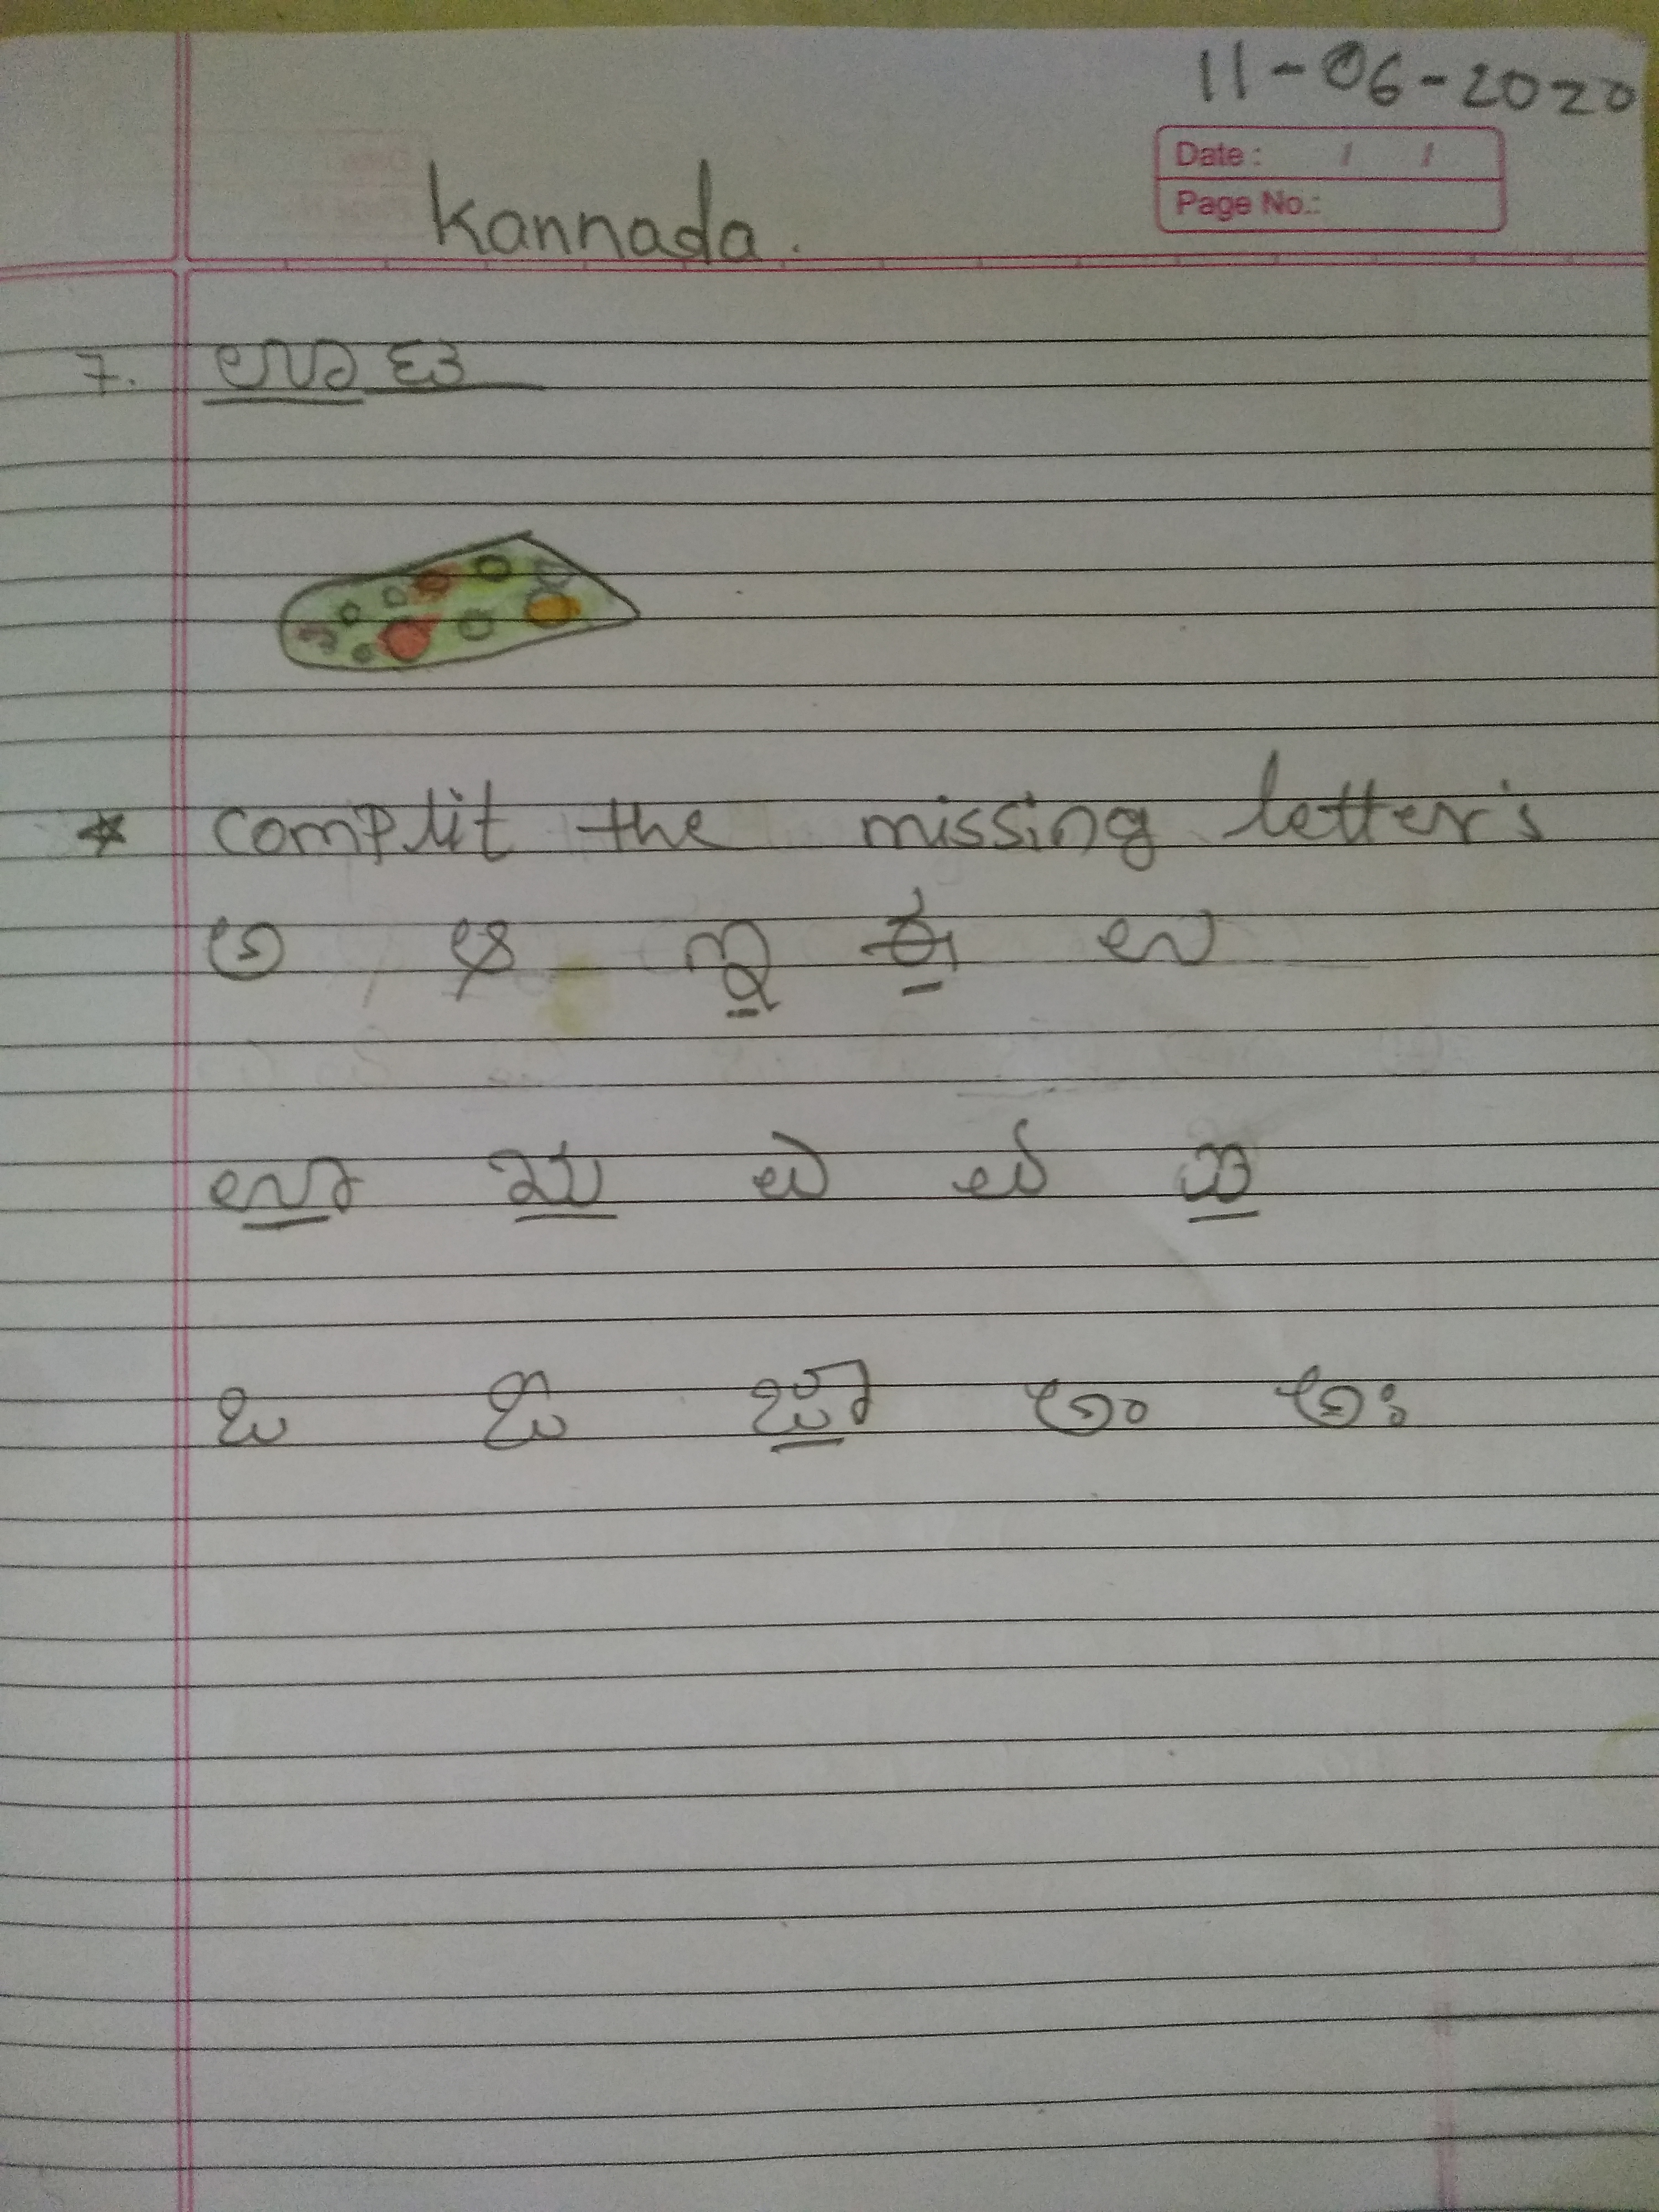 11-06-2020
Date: / /
Page No.:
Kannada.
7. ಊಟ
* Complit the missing letter's
ಅ ಆ ಇ ಈ ಉ
ಊ ಋ ಎ ಏ ಐ
ಒ ಓ ಔ ಅಂ ಅಃ